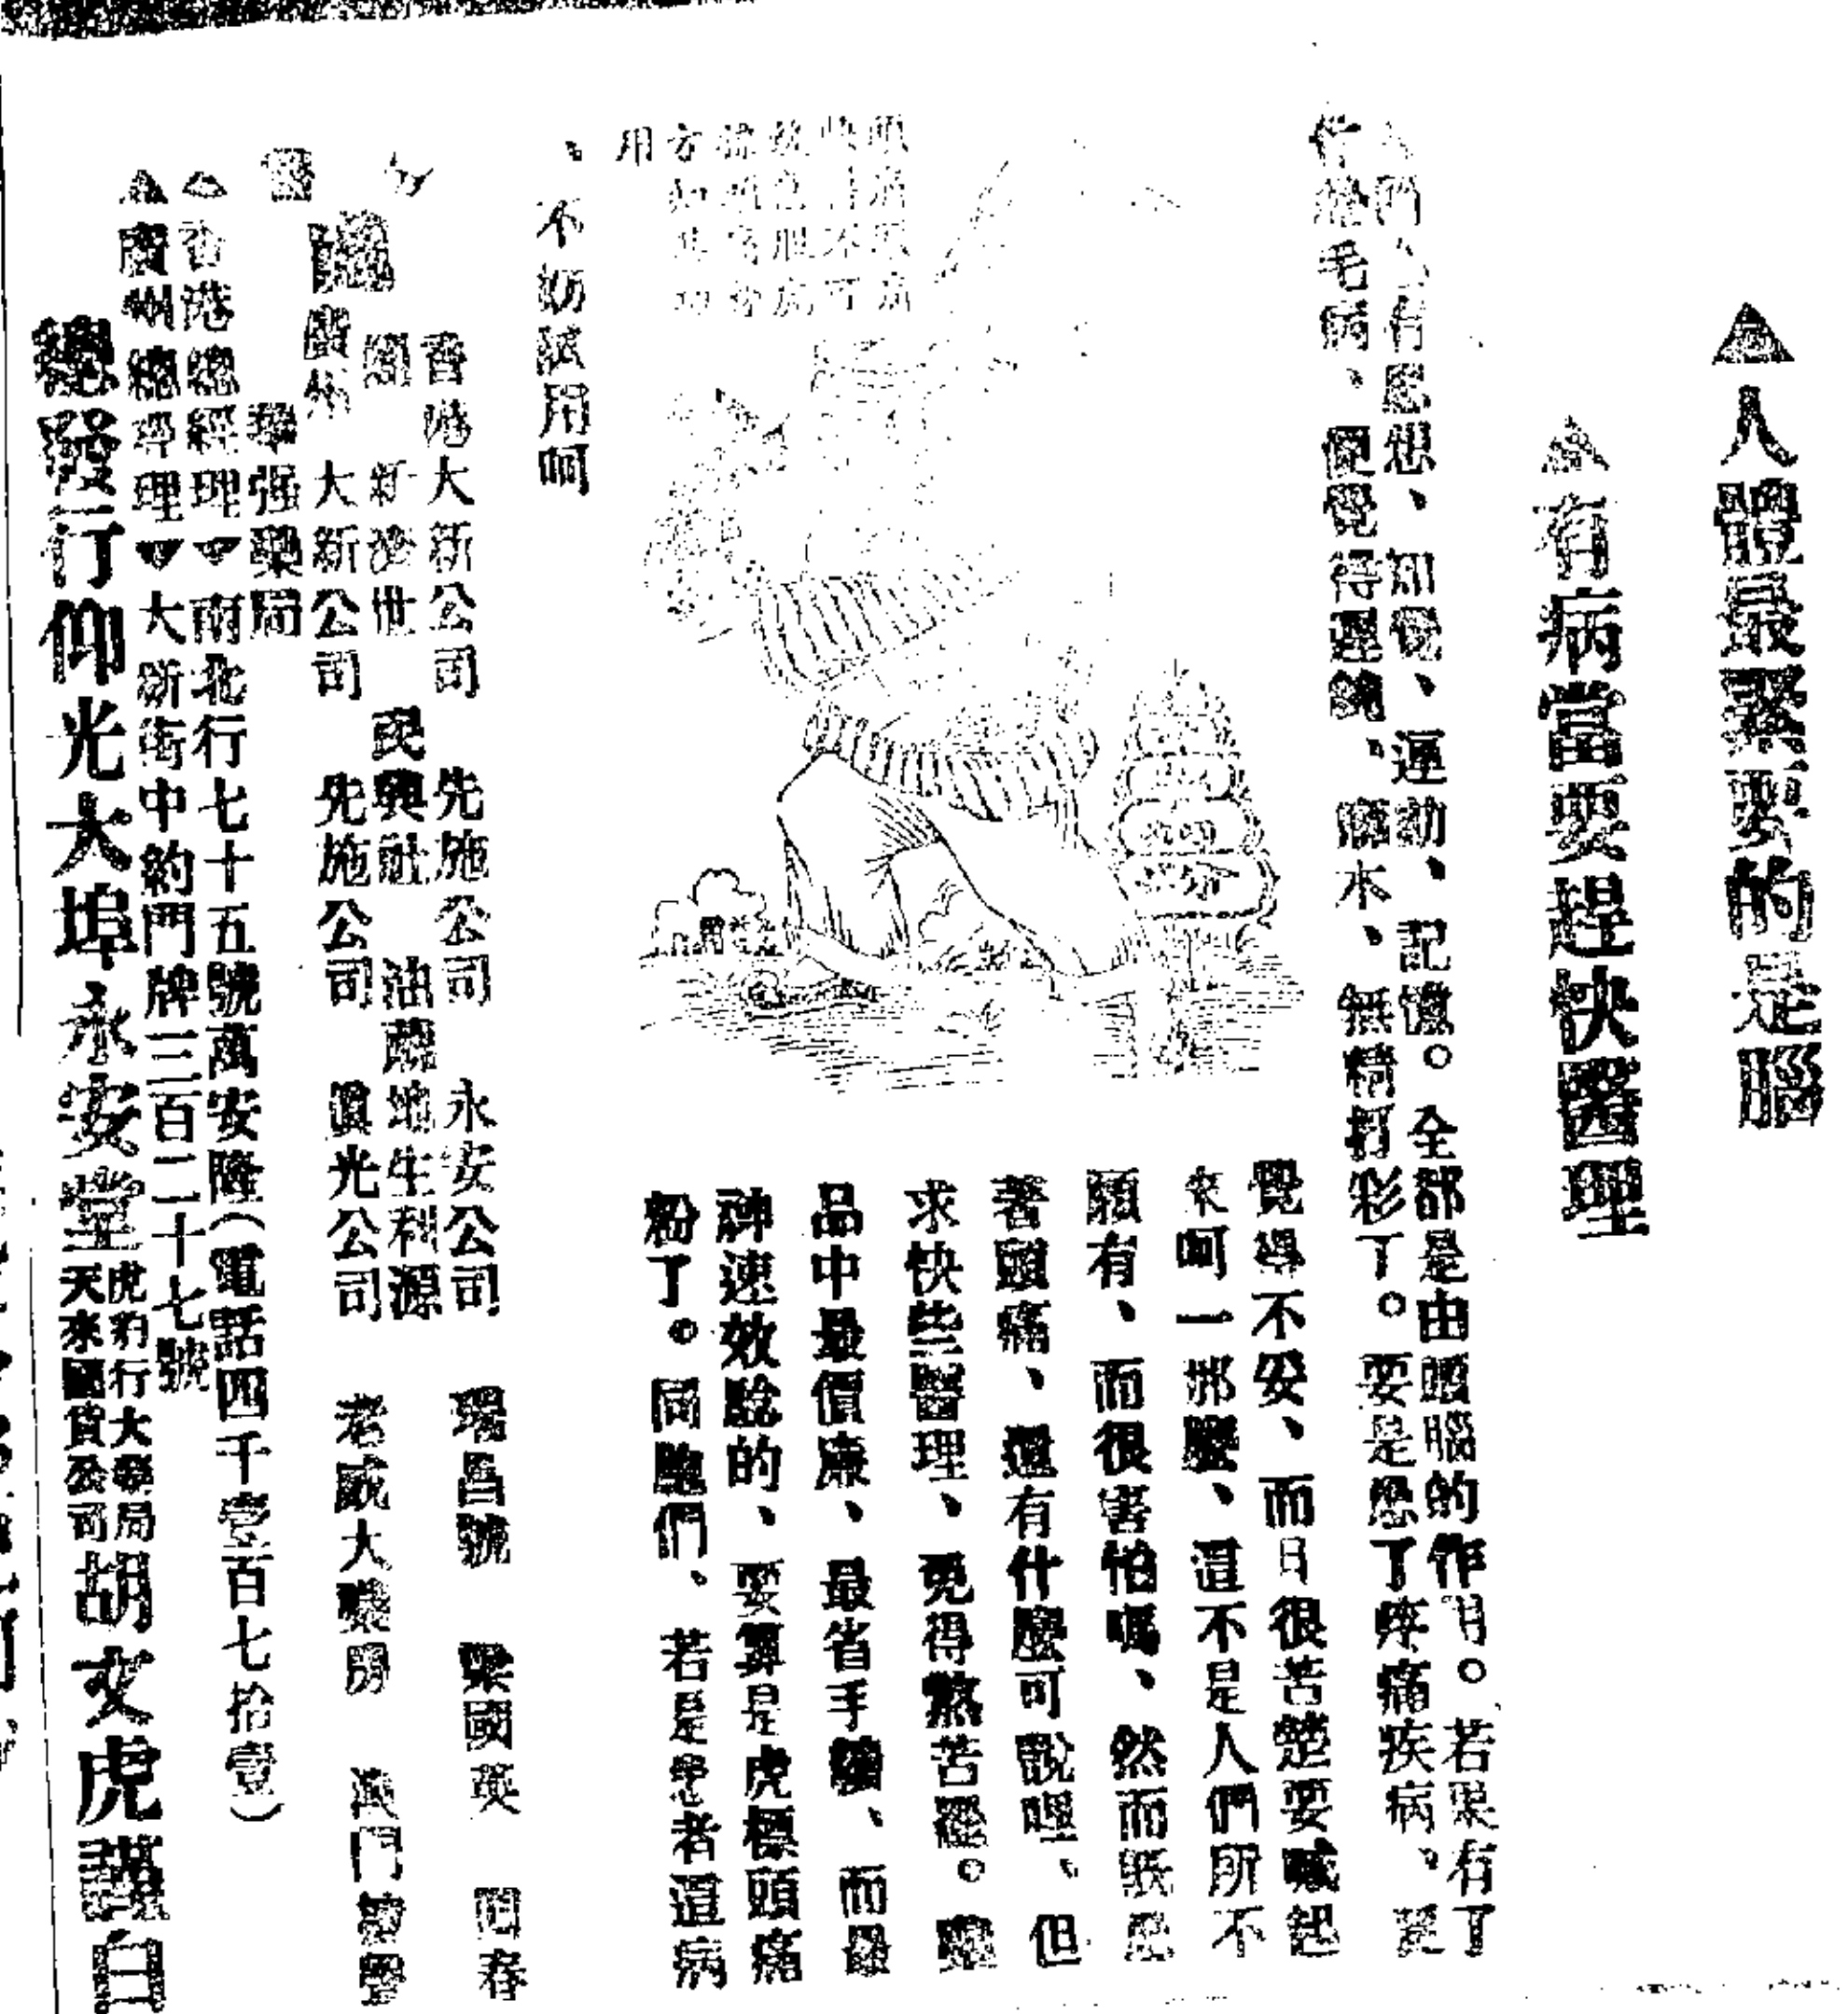 ▲人體最緊要的是腦
▲有病當要趕快醫理
人們有思想、知覺、運動、記憶。全部是由頭腦的作用。若果有了
什麼毛病、便覺得遲鈍、麻木、無精打彩了。要是患了疼痛疾病、更
覺得不妥、而且很苦楚要喊起
來呵一那麼、這不是人們所不
願有、而很害怕嗎、然而既是
著頭痛、還有什麼可說哩、但
求快些醫理、免得熬苦罷。藥
品中最價廉、最省手續、而最
神速效驗的、要算是虎標頭痛
粉了。同胞們、若是患者這病
、不妨試用呵
香港大新公司 先施公司 永安公司 瑞昌號 梁國英 回春
新濟世 民興社 油蔴地生利源
廣州 大新公司 先施公司 眞光公司 老威大藥房 澳門
華强藥局
▲香港總經理▼南北行七十五號萬安隆(電話四千壹百七拾壹)
▲廣州總經理▼大新街中約門牌三百二十七號
總發行仰光大埠永安堂虎豹行大藥局天來國貨公司胡文虎謹白